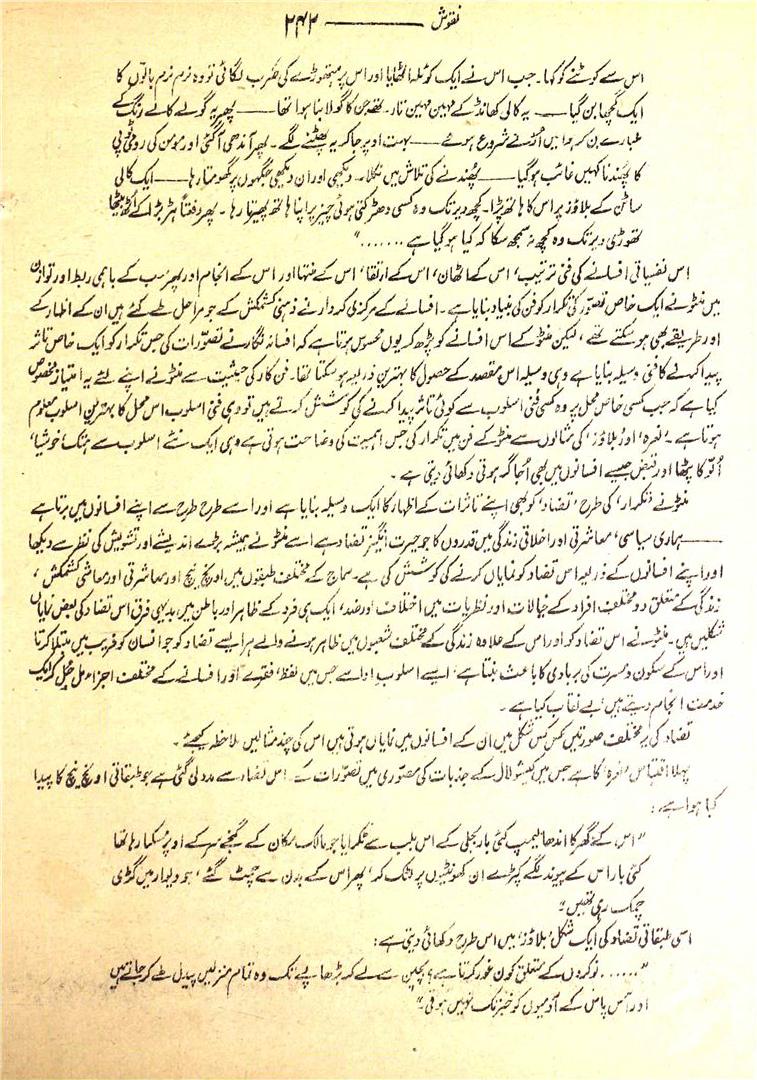 نقوش ——— ۲۴۲
اس سے کوٹنے کو کہا۔ جب اس نے ایک کوئلہ اٹھایا اور اس پر ہتھوڑے کی ضرب لگائی تو وہ نرم نرم بالوں کا
ایک گچھا بن گیا —— یہ کالی کھانڈ کے مہین مہین تار تھے جن کا گولا بنا ہوا تھا —— پھر یہ گولے کالے رنگ کے
غبارے بن کر ہوا میں اُڑنے شروع ہوئے —— بہت اوپر جا کر یہ پھٹنے لگے۔ پھر آندھی آ گئی اور مومن کی رومی ٹوپی
کا پھندنا کہیں غائب ہو گیا —— پھندنے کی تلاش میں نکلا۔ دیکھی اور ان دیکھی جگہوں پر گھومتا رہا —— ایک کالی
ساٹن کے بلاؤز پر اس کا ہاتھ پڑا۔ کچھ دیر تک وہ کسی دھڑکتی ہوئی چیز پر اپنا ہاتھ پھیرتا رہا۔ پھر دفعتاً ہڑبڑا کے اُٹھ بیٹھا
تھوڑی دیر تک وہ کچھ نہ سمجھ سکا کہ کیا ہو گیا ہے .......“
اِس نفسیاتی افسانے کی فنی ترتیب، اس کے اٹھان، اس کے ارتقا، اس کے منتہا اور اس کے انجام اور پھر سب کے باہمی ربط اور توازن
میں منٹو نے ایک خاص تصوّر کی تکرار کو فن کی بنیاد بنایا ہے۔ افسانے کے مرکزی کردار نے ذہنی کشمکش کے جو مراحل طے کئے ہیں ان کے اظہار کے
اور طریقے بھی ہو سکتے تھے، لیکن منٹو کے اس افسانے کو پڑھ کر یوں محسوس ہوتا ہے کہ افسانہ نگار نے تصوّرات کی جس تکرار کو ایک خاص تاثر
پیدا کرنے کا فنی وسیلہ بنایا ہے وہی وسیلہ اس مقصد کے حصول کا بہترین ذریعہ ہو سکتا تھا۔ فن کار کی حیثیت سے منٹو نے اپنے لئے یہ امتیاز مخصوص
کیا ہے کہ جب کسی خاص محل پر وہ کسی فنی اسلوب سے کوئی تاثر پیدا کرنے کی کوشش کرتے ہیں تو وہی فنی اسلوب اس محل کا بہترین اسلوب معلوم
ہوتا ہے۔ ’نعرہ‘ اور ’بلاؤز‘ کی مثالوں سے منٹو کے فن میں تکرار کی جس اہمیت کی وضاحت ہوتی ہے وہی ایک نئے اسلوب سے ہتک، خوشیا،
اُلّو کا پٹھا اور قبض جیسے افسانوں میں بھی اُجاگر ہوتی دکھائی دیتی ہے۔
منٹو نے ’تکرار‘ کی طرح ’تضاد‘ کو بھی اپنے تاثرات کے اظہار کا ایک وسیلہ بنایا ہے اور اسے طرح طرح سے اپنے افسانوں میں برتا ہے
—— ہماری سیاسی، معاشرتی اور اخلاقی زندگی میں قدروں کا جو حیرت انگیز تضاد ہے اسے منٹو نے ہمیشہ بڑے اندیشے اور تشویش کی نظر سے دیکھا
اور اپنے افسانوں کے ذریعہ اس تضاد کو نمایاں کرنے کی کوشش کی ہے۔ سماج کے مختلف طبقوں میں اونچ نیچ اور معاشرتی اور معاشی کشمکش،
زندگی کے متعلق دو مختلف افراد کے خیالات اور نظریات میں اختلاف اور ضد، ایک ہی فرد کے ظاہر اور باطن میں بدیہی فرق اس تضاد کی بعض نمایاں
شکلیں ہیں۔ منٹو نے اس تضاد کو اور اس کے علاوہ زندگی کے مختلف شعبوں میں ظاہر ہونے والے ہر ایسے تضاد کو جو انسان کو فریب میں مبتلا کرتا
اور اس کے سکون و مسرت کی بربادی کا باعث بنتا ہے، ایسے اسلوبِ ادا سے جس میں لفظ، فقرے اور افسانے کے مختلف اجزاء مل جُل کر ایک
خدمت انجام دیتے ہیں، بے نقاب کیا ہے۔
تضاد کی یہ مختلف صورتیں کس کس شکل میں ان کے افسانوں میں نمایاں ہوتی ہیں اس کی چند مثالیں ملاحظہ کیجئے۔
پہلا اقتباس ’نعرہ‘ کا ہے جس میں کیشو لال کے جذبات کی مصوّری میں تصوّرات کے اس تضاد سے مدد لی گئی ہے جو طبقاتی اونچ نیچ کا پیدا
کیا ہوا ہے:
”اس کے گھر کا اندھا لیمپ کئی بار بجلی کے اس بلب سے ٹکرایا جو مالک مکان کے گنجے سر کے اوپر مُسکرا رہا تھا
کئی بار اس کے پیوند لگے کپڑے ان کھونٹیوں پر لٹک کر، پھر اس کے بدن سے چمٹ گئے، جو دیوار میں گڑی
چمک رہی تھیں۔“
اسی طبقاتی تضاد کی ایک شکل ’بلاؤز‘ میں اس طرح دکھائی دیتی ہے:
”...... نوکروں کے متعلق کون غور کرتا ہے؟ بچپن سے لے کر بڑھاپے تک وہ تمام منزلیں پیدل طے کر جاتے ہیں
اور آس پاس کے آدمیوں کو خبر تک نہیں ہوتی۔“